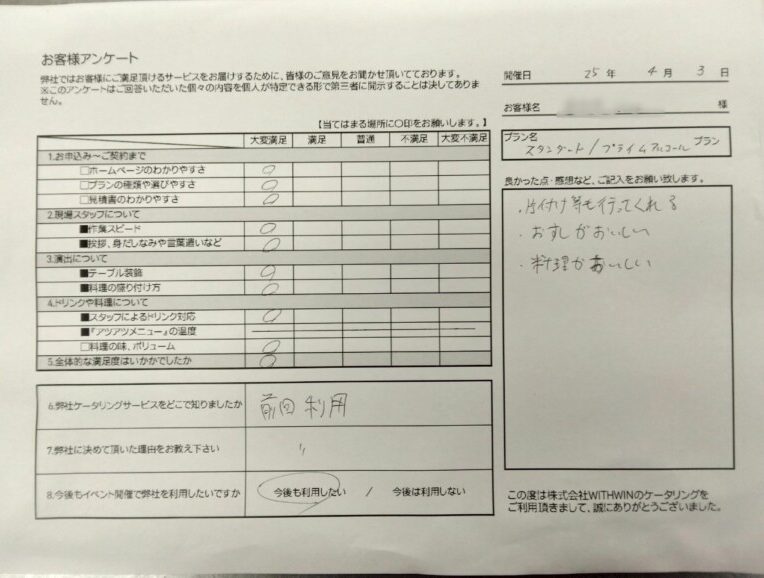 お客様アンケート
弊社ではお客様にご満足頂けるサービスをお届けするために、皆様のご意見をお聞かせ頂いております。
※このアンケートはご回答いただいた個々の内容を個人が特定できる形で第三者に開示することは決してありま
せん。
開催日 25 年 4 月 3 日
お客様名 様
【当てはまる場所に〇印をお願いします。】
大変満足 満足 普通 不満足 大変不満足
プラン名
スタンダード / プライムアルコール プラン
1.お申込み~ご契約まで
□ホームページのわかりやすさ ○
□プランの種類や選びやすさ ○
□見積書のわかりやすさ ○
2.現場スタッフについて
■作業スピード ○
■挨拶、身だしなみや言葉遣いなど ○
3.演出について
■テーブル装飾 ○
■料理の盛り付け方 ○
4.ドリンクや料理について
■スタッフによるドリンク対応 ○
■『アツアツメニュー』の温度
□料理の味、ボリューム ○
5.全体的な満足度はいかがでしたか ○
良かった点・感想など、ご記入をお願い致します。
・片付け等も行ってくれる
・おすしがおいしい
・料理がおいしい
6.弊社ケータリングサービスをどこで知りましたか 前回利用
7.弊社に決めて頂いた理由をお教え下さい 〃
8.今後もイベント開催で弊社を利用したいですか 今後も利用したい / 今後は利用しない
この度は株式会社WITHWINのケータリングを
ご利用頂きまして、誠にありがとうございました。